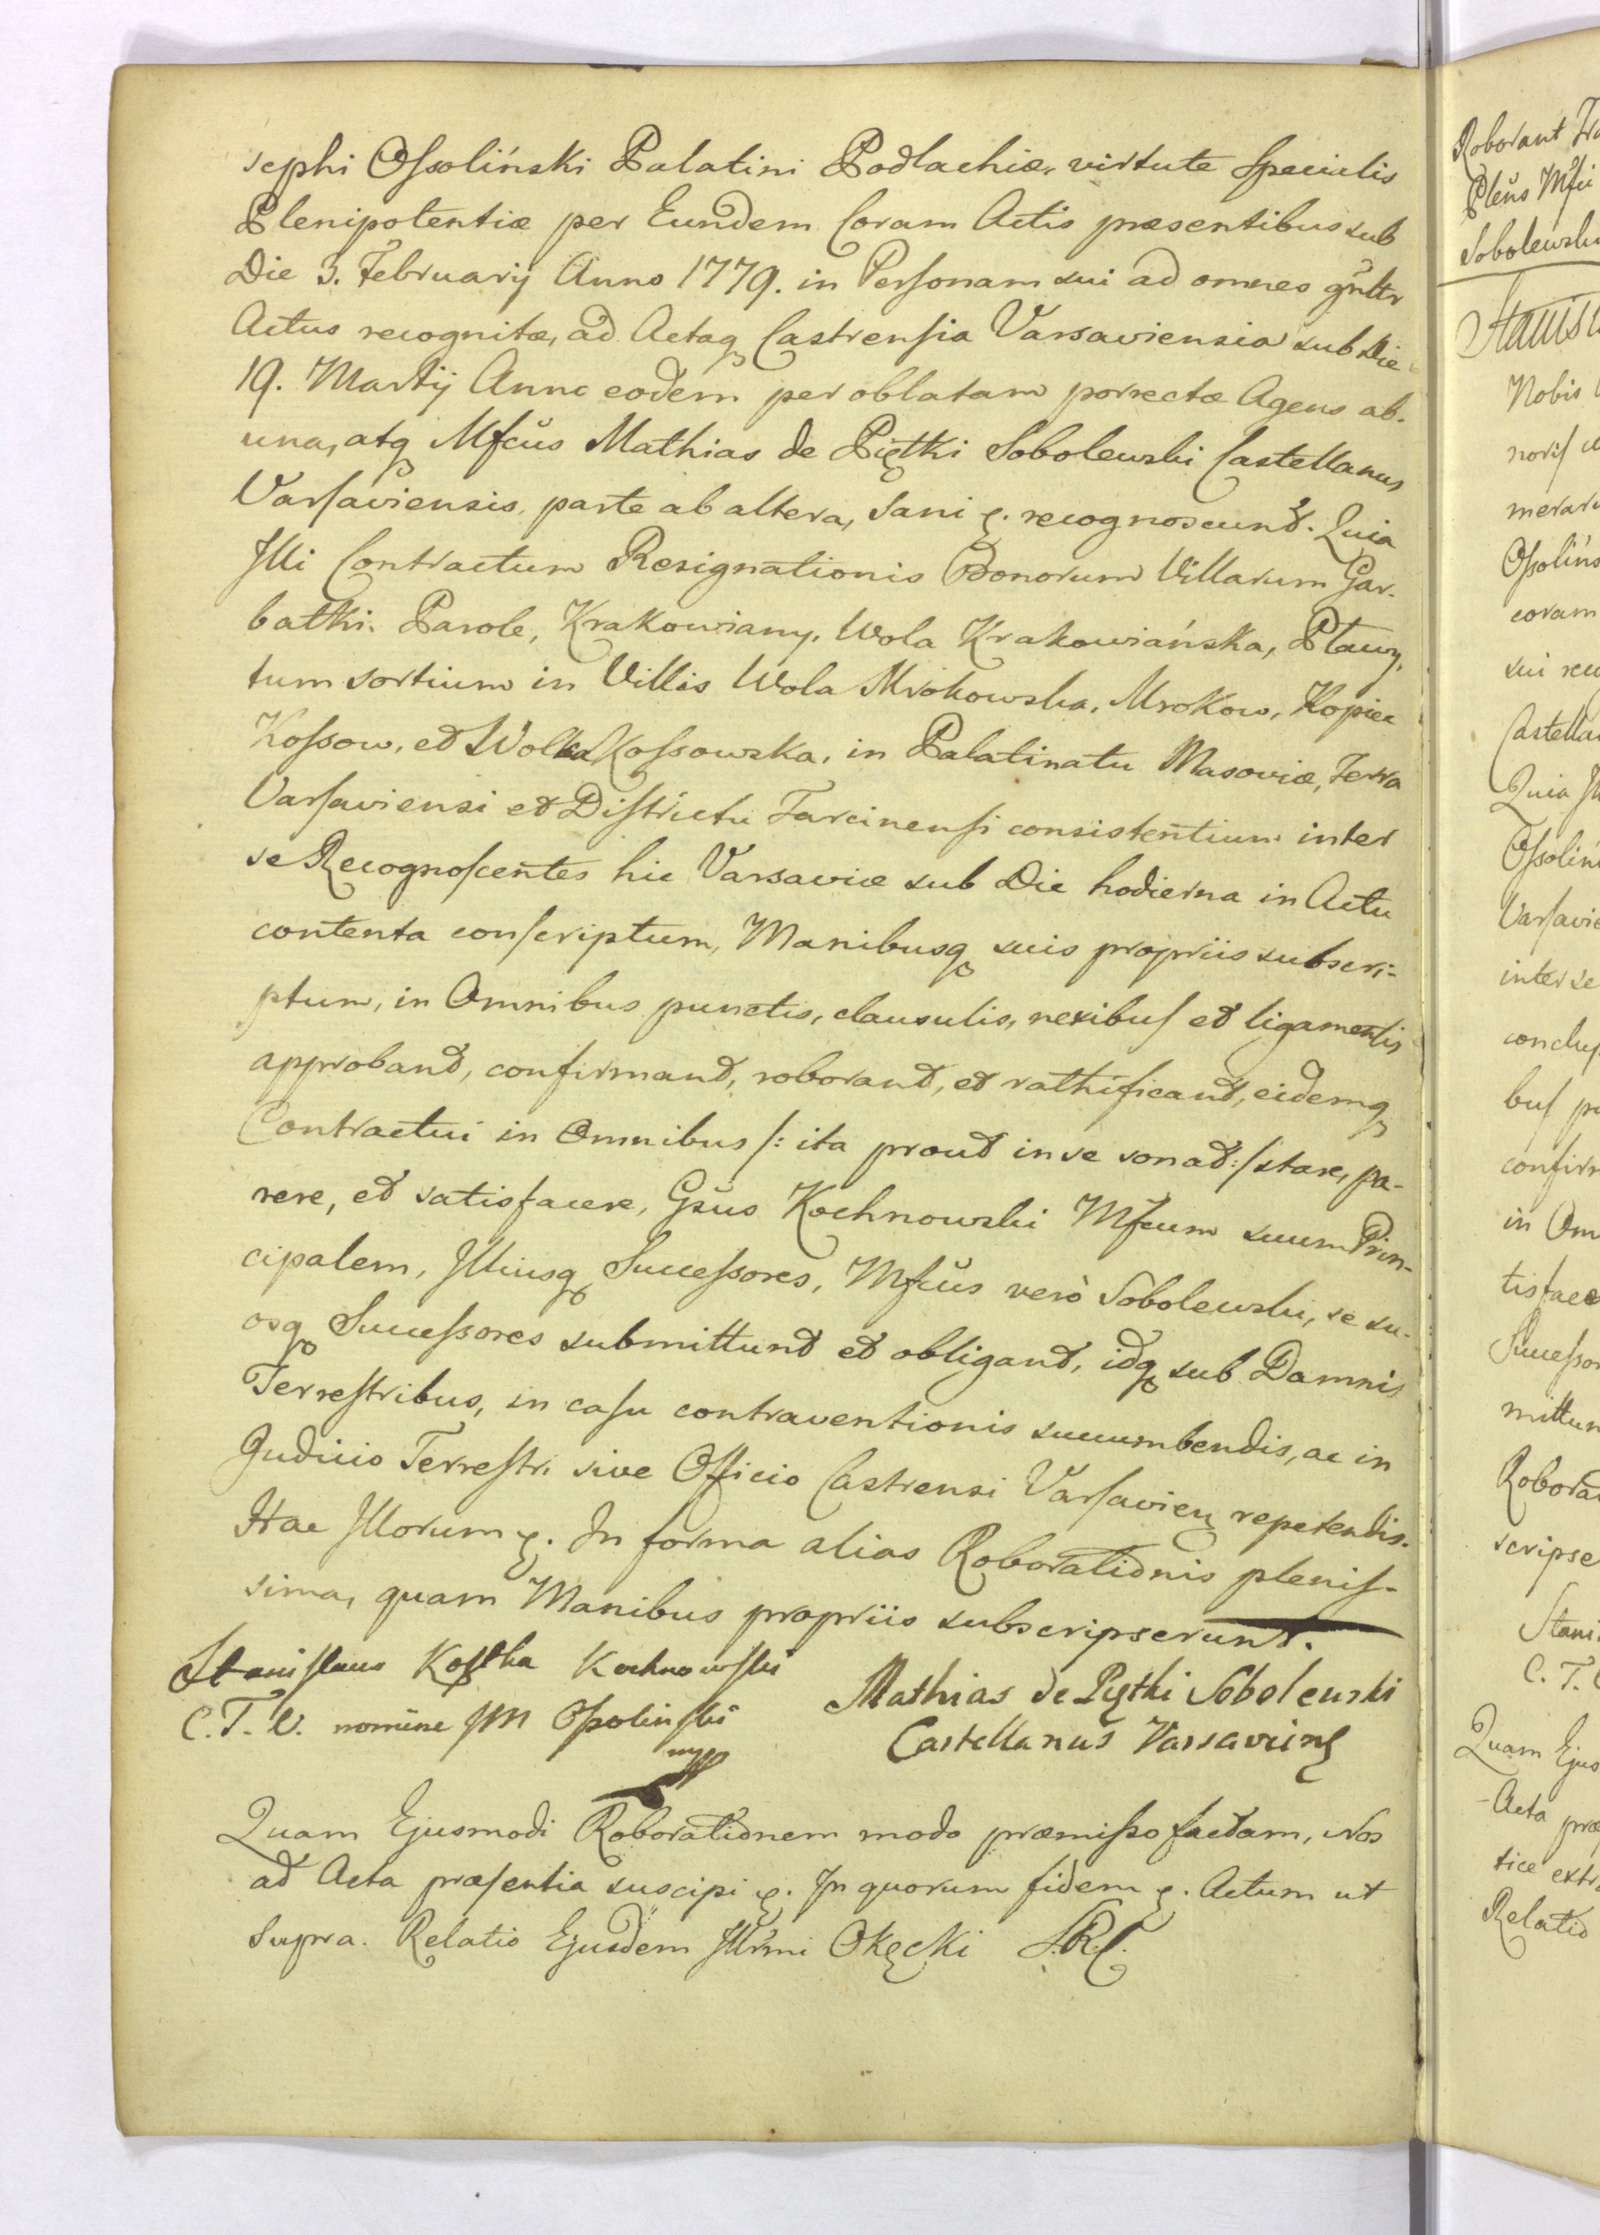 sephi Ossoliński Palatini Podlachiæ, virtute Specialis
Plenipotentiæ per Eundem Coram Actis præsentibus sub
Die 3. Februarij Anno 1779. in Personam sui ad omnes gnltr
Actus recognitæ, ad Actaq Castrensia Varsaviensia sub Die
19. Martij Anno eodem per oblatam porrectæ Agens ab
una, atq Mfcus Mathias de Piętki Sobolewski Castellanus
Varsaviensis, parte ab altera, Sani e. recognoscund. Quia
Illi Contractum Resignationis Bonorum Villarum Gar-
batki. Parole, Krakowiany, Wola Krakowiańska,
tum sortium in Villis Wola Mrokowska, Mrokow, Kopiec
Kossow, et Wolka Kossowska, in Palatinatu Masoviæ, Terra
Varsaviensi et Districtu Tarcinensi consistentium inter
se Recognoscentes hic Varsaviæ sub Die hodierna in Actu
contenta conscriptum, Manibusq suis propriis subscri-
ptum, in Omnibus punctis, clausulis, nexibus et ligamentis
approband, confirmand, roborand, et rathificand, eidemq
Contractui in Omnibus /: ita prout in se sonat :/ stare, pa-
rere, et satisfacere, Gsus Kochnowski Mfcum suum Prin-
cipalem, Illiusq Successores, Mfcus verò Sobolewski, se su-
osq Successores submittund et obligand, idq sub Damnis
Terrestribus, in casu contraventionis succumbendis, ac in
Judicio Terrestri sive Officio Castrensi Varsavien repetendis.
Hac Illorum e. In forma alias Roborationis plenis-
sima, quam Manibus propriis subscripserunt.
Stanislaus Kostka Kochnowski
C. T. V. nomine JM Ossolinski
mpp
Mathias de Pętki Sobolewski
Castellanus Varsavien
Quam Ejusmodi Roborationem modo præmisso factam, Nos
ad Acta præsentia suscipi e. In quorum fidem e. Actum ut
Supra. Relatio Ejusdem Illrmi Okęcki S.R.C.
Roborant
Pleus Mfci
Sobolewski
Nobis
Ossolins
coram
Castella
Ossolin
Varsavie
inter se
bus
confirm
in Om
tisface
Successor
mittun
Robora
scripse
Stani
C. T.
Quam Ejus
Acta præ
tice extra
Relatio